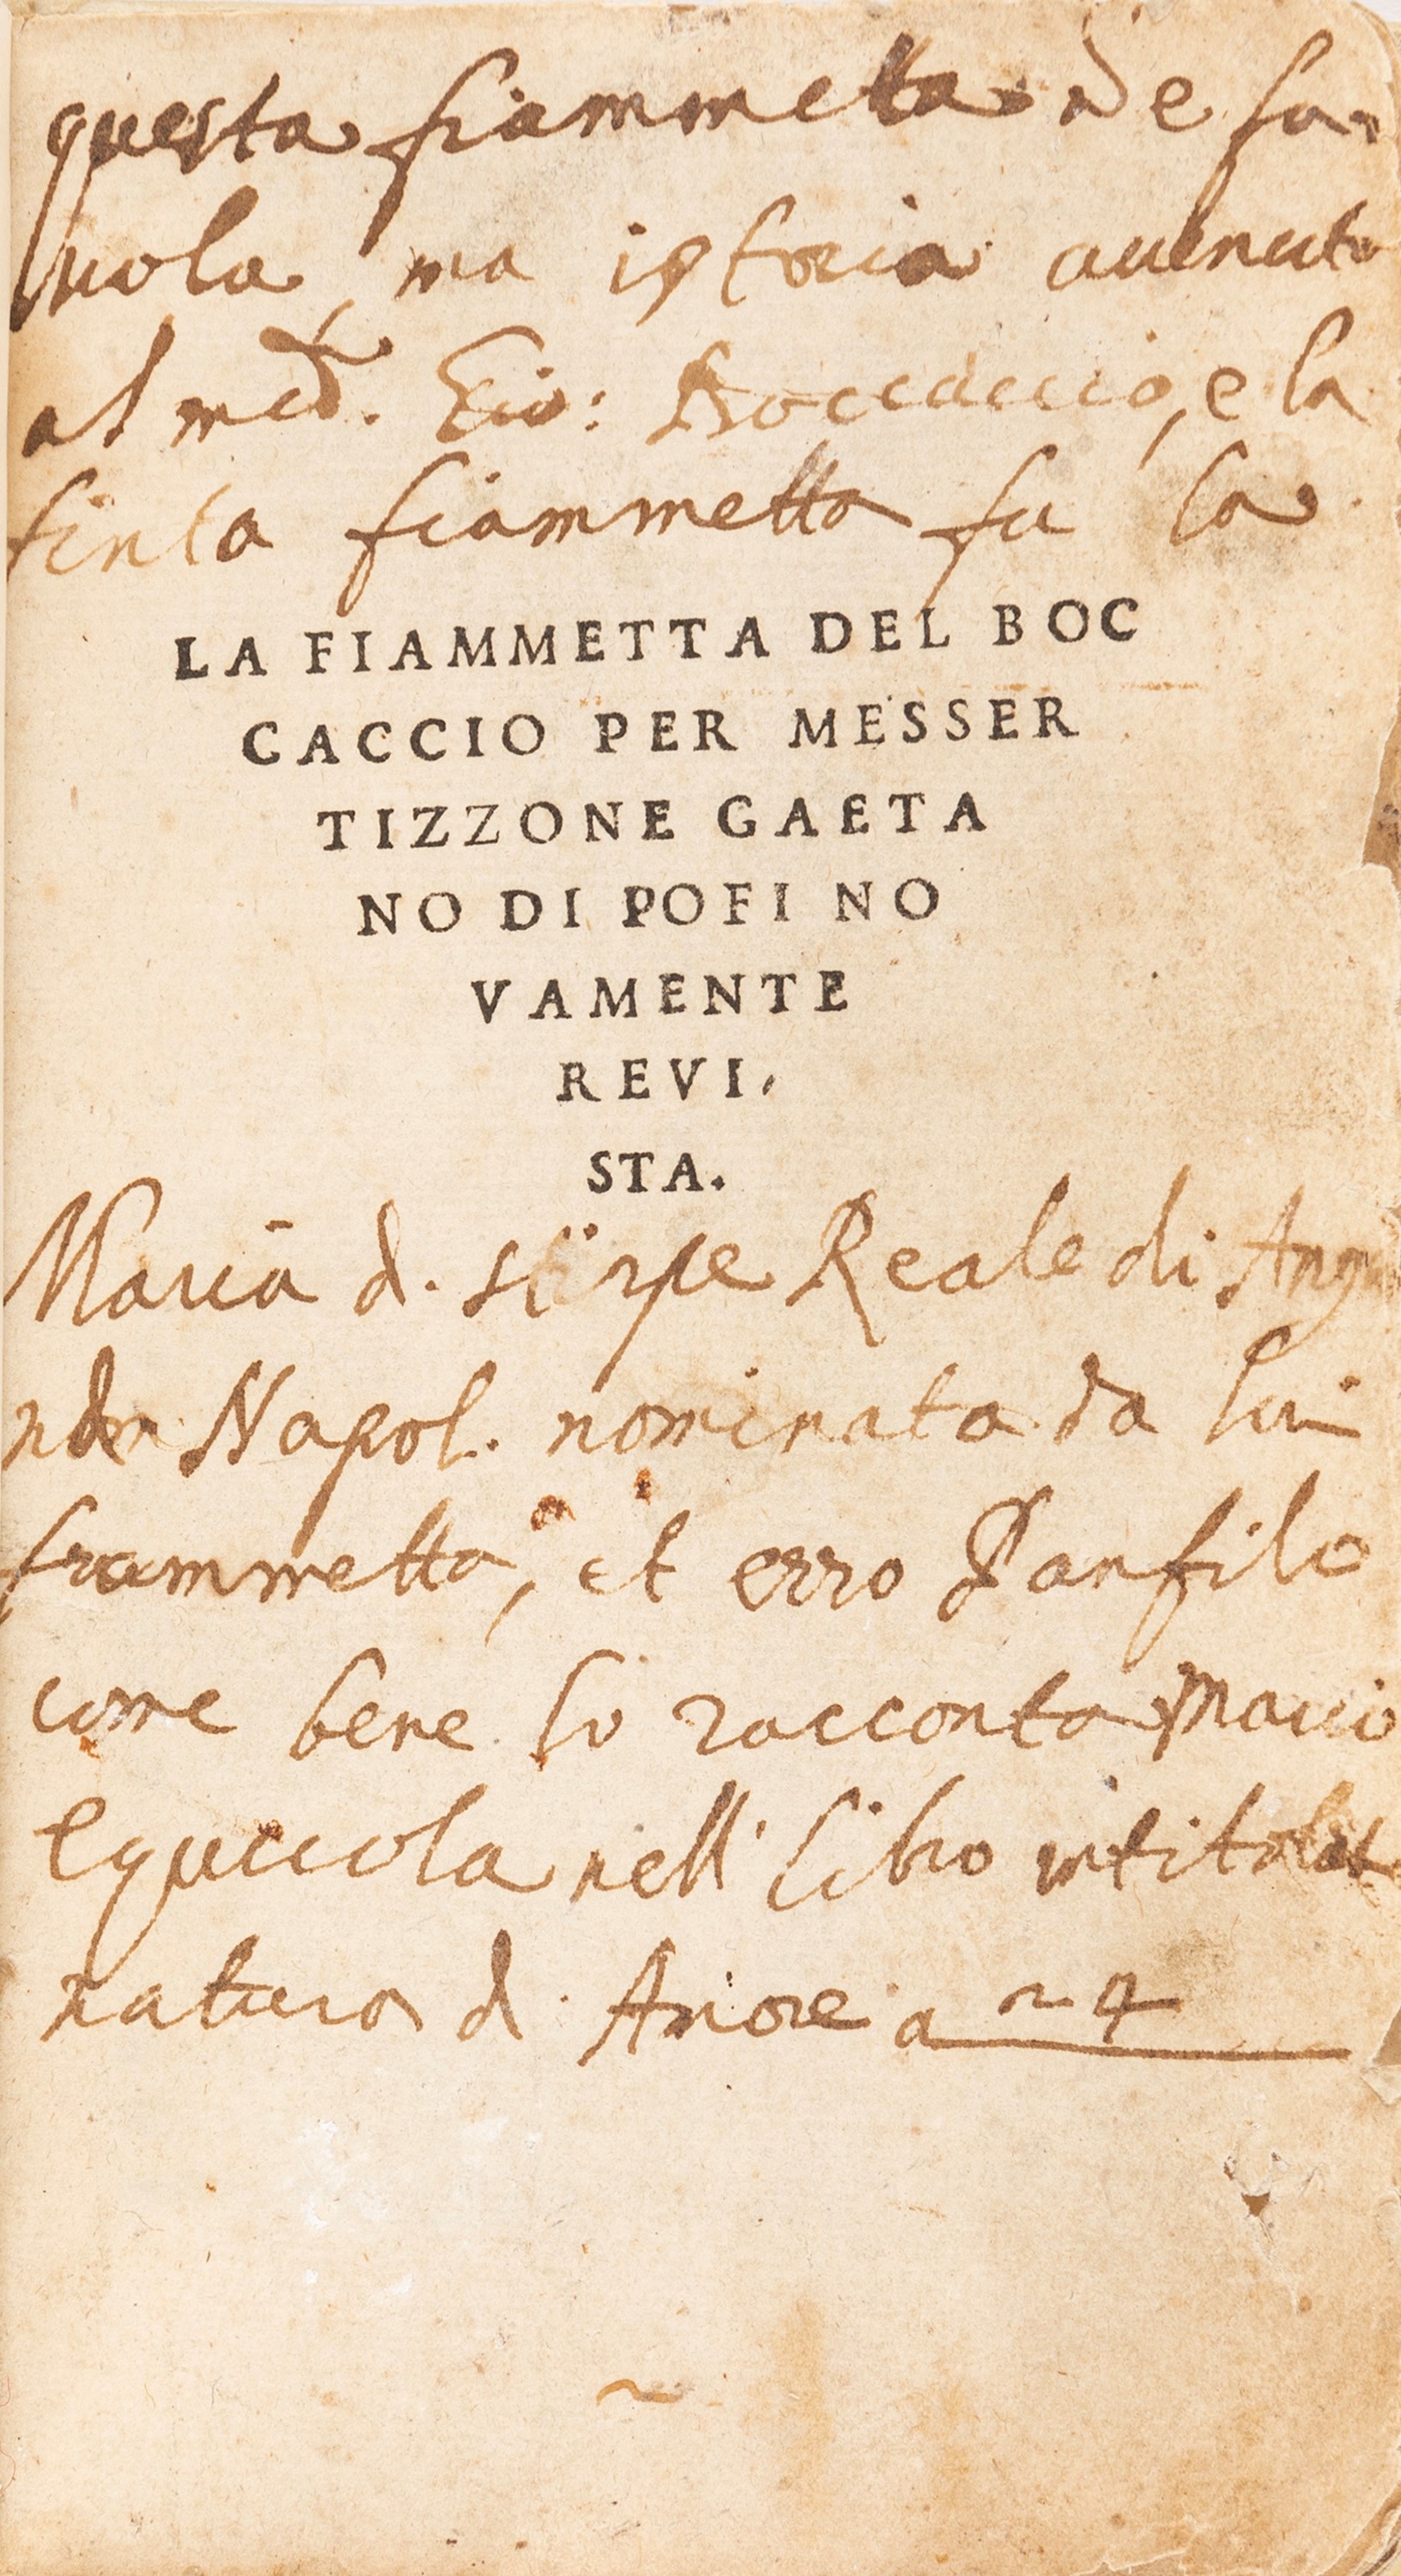 questa fiammetta nõ e fa-
uola, ma istoria auenuta
al med.º Gio: Boccaccio, e la
finta fiammetta fu la
LA FIAMMETTA DEL BOC
CACCIO PER MESSER
TIZZONE GAETA
NO DI POFI NO
VAMENTE
REVI,
STA.
Maria d. stirpe Reale di
Napol. nominata da lui
fiammetta, et erro Panfilo
come bene lo racconta Mario
Equicola nell' libro intitolat
natura d. Amore a 4